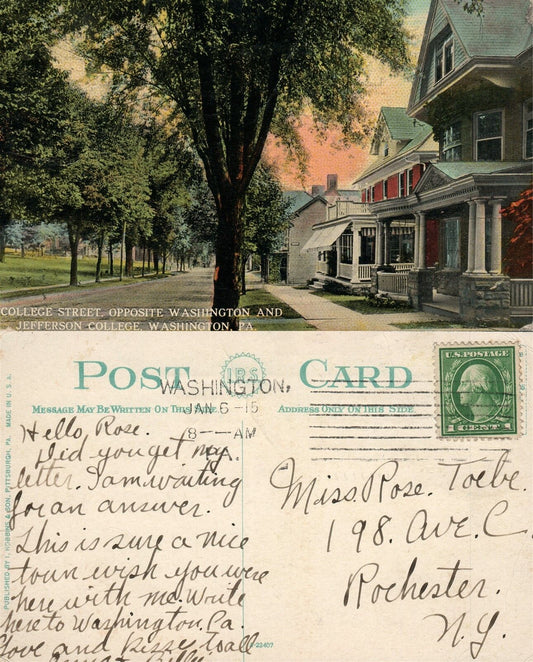 COLLEGE STREET, OPPOSITE WASHINGTON AND
JEFFERSON COLLEGE, WASHINGTON, PA.
POST CARD
IRS
MESSAGE MAY BE WRITTEN ON THIS SIDE.
ADDRESS ONLY ON THIS SIDE
WASHINGTON,
JAN 6 - 15
8 - AM
PA.
U.S. POSTAGE
1 CENT 1
PUBLISHED BY I. ROBBINS & SON, PITTSBURGH, PA. MADE IN U.S.A.
Hello, Rose.
Did you get my
letter. I am waiting
for an answer.
This is sure a nice
town wish you were
here with me. Write
here to Washington, Pa.
Love and kisses to all
Miss Rose. Toebe.
198. Ave. C.
Rochester.
N.Y.
22407